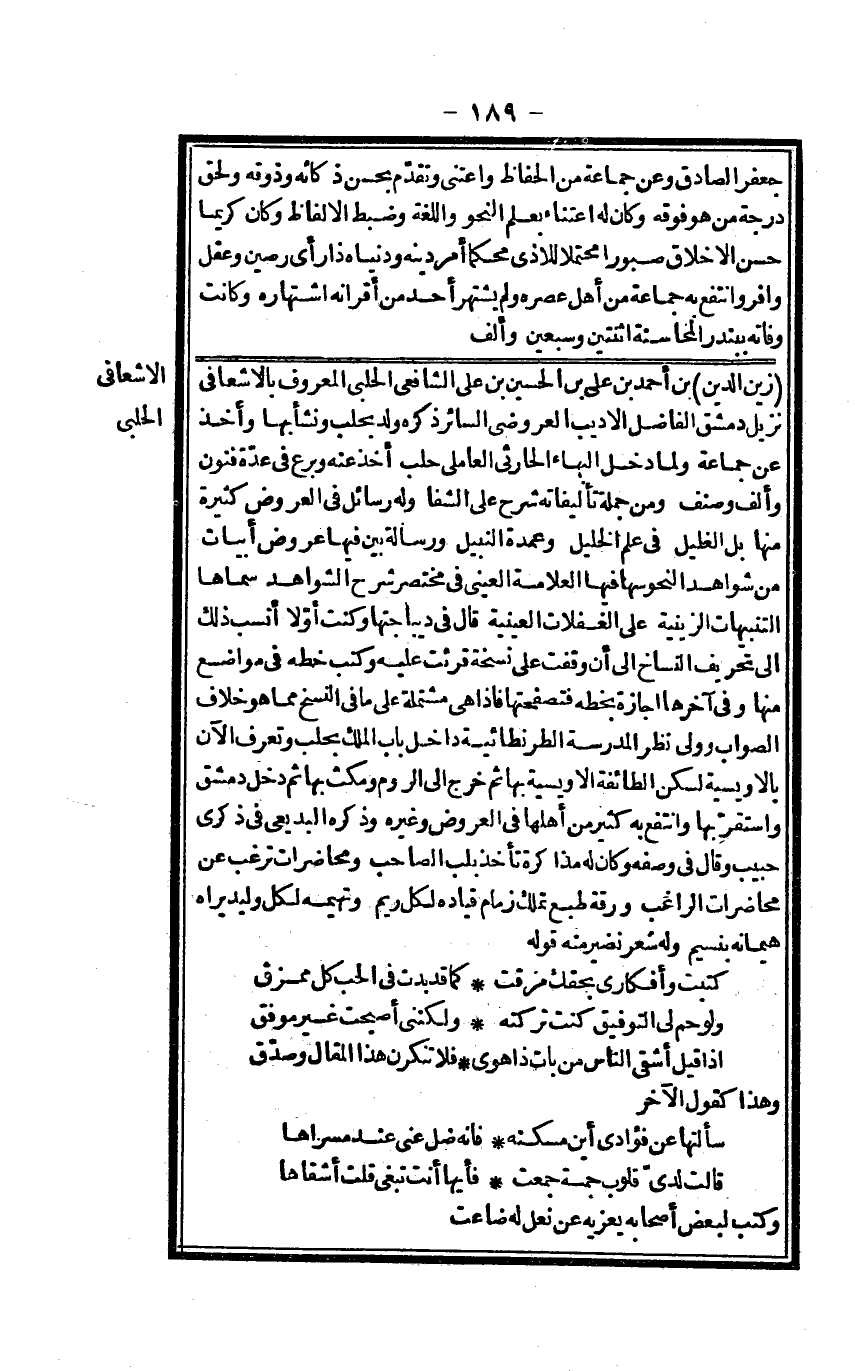 - ١٨٩ -
جعفر الصادق وعن جماعة من الحفاظ واعتنى وتقدّم بحسن ذكائه وذوقه ولحق
درجة من هو فوقه وكان له اعتناء بعلم النحو واللغة وضبط الالفاظ وكان كريما
حسن الاخلاق صبورا محتملا للاذى محكما أمر دينه ودنياه ذا رأى رصين وعقل
وافر وانتفع به جماعة من أهل عصره ولم يشتهر أحد من أقرانه اشتهاره وكانت
وفاته ببندر المخا سنة اثنتين وسبعين وألف
الاشعافى
الحلبى
(زين الدين) بن أحمد بن على بن الحسين بن على الشافعى الحلبى المعروف بالاشعافى
نزيل دمشق الفاضل الاديب العروضى السائر ذكره ولد بحلب ونشأ بها وأخذ
عن جماعة ولما دخل البهاء الحارثى العاملى حلب أخذ عنه وبرع فى عدّة فنون
وألف وصنف ومن جملة تأليفاته شرح على الشفا وله رسائل فى العروض كثيرة
منها بل الغليل فى علم الخليل وعمدة النبيل ورسالة بين فيها عروض أبيات
من شواهد النحو سها فيها العلامة العينى فى مختصر شرح الشواهد سماها
التنبيهات الزينية على الغفلات العينية قال فى ديباجتها وكنت أوّلا أنسب ذلك
الى تحريف النساخ الى أن وقفت على نسخة قرئت عليه وكتب خطه فى مواضع
منها وفى آخرها اجازة بخطه فتصفحتها فاذا هى مشتملة على ما فى النسخ مما هو خلاف
الصواب وولى نظر المدرسة الطرنطائية داخل باب الملك بحلب وتعرف الآن
بالاويسية لسكن الطائفة الاويسية بها ثم خرج الى الروم ومكث بها ثم دخل دمشق
واستقرّ بها وانتفع به كثير من أهلها فى العروض وغيره وذكره البديعى فى ذكرى
حبيب وقال فى وصفه وكان له مذاكرة تأخذ بلب الصاحب ومحاضرات ترغب عن
محاضرات الراغب ورقة طبع تملك زمام قياده لكل ريم وتهيمه لكل وليد يراه
هيمانه بنسيم وله شعر نضير منه قوله
كتبت وأفكارى بحقك مزقت * كما قد بدت فى الحب كل ممزق
ولو حم لى التوفيق كنت تركته * ولكننى أصبحت غير موفق
اذا قيل أشقى الناس من بات ذا هوى * فلا تنكرن هذا المقال وصدّق
وهذا كقول الآخر
سألتها عن فؤادى أين مسكنه * فانه ضل عنى عند مسراها
قالت لدىّ قلوب جمة جمعت * فأيها أنت تبغى قلت أشقاها
وكتب لبعض أصحابه يعزيه عن نعل له ضاعت